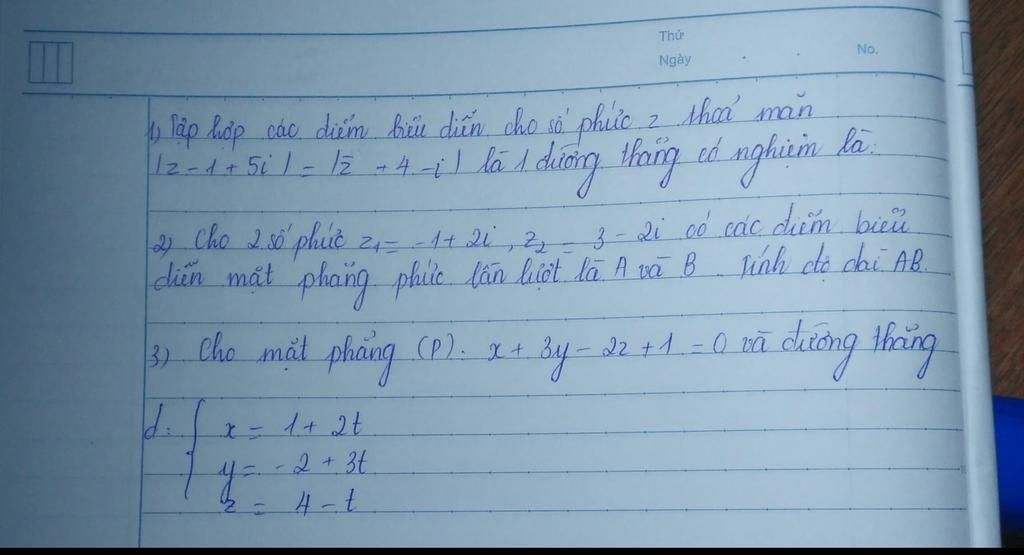 Thứ
Ngày
No.
1) Tập hợp các điểm biểu diễn cho số phức z thoả mãn
|z - 1 + 5i| = |z̄ + 4 - i| là 1 đường thẳng có nghiệm là:
2) Cho 2 số phức z₁ = -1 + 2i, z₂ = 3 - 2i có các điểm biểu
diễn mặt phẳng phức lần lượt là A và B. Tính độ dài AB.
3) Cho mặt phẳng (P): x + 3y - 2z + 1 = 0 và đường thẳng
d: { x = 1 + 2t
y = -2 + 3t
z = 4 - t